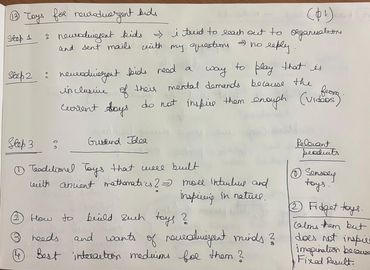 (13) Toys for neurodivergent kids
(φ1)
Step 1 : neurodivergent kids → i tried to reach out to organisations
and sent mails with my questions → no reply
Step 2 : neurodivergent kids need a way to play that is
inclusive of their mental demands because the
current toys do not inspire them enough (from videos)
Step 3 :
① Traditional Toys that were built
with ancient mathematics? ⇒ more intuitive and
inspiring in nature
② How to build such toys?
③ needs and wants of neurodivergent minds?
④ Best interaction mediums for them?
Relevant
products
① Sensory
toys.
② Fidget toys.
Calms them but
does not inspire
imagination because
Fixed Result.